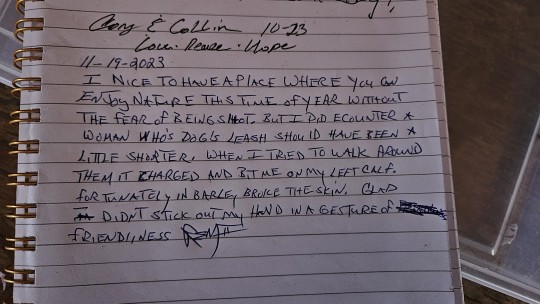 & Collin 10-23
Love. Peace. Hope
11-19-2023
I NICE TO HAVE A PLACE WHERE YOU CAN
ENJOY NATURE THIS TIME OF YEAR WITHOUT
THE FEAR OF BEING SHOT. BUT I DID ECOUNTER A
WOMAN WHO'S DOG'S LEASH SHOULD HAVE BEEN A
LITTLE SHORTER. WHEN I TRIED TO WALK AROUND
THEM IT CHARGED AND BIT ME ON MY LEFT CALF.
FORTUNATELY IN BARLEY BROKE THE SKIN. GLAD
I DIDN'T STICK OUT MY HAND IN A GESTURE OF
FRIENDLINESS